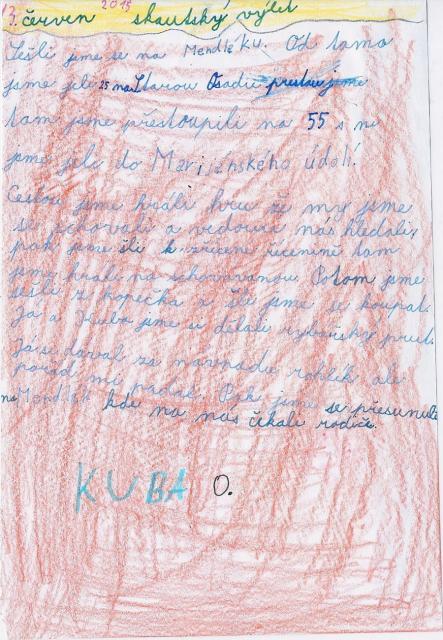 13. červen 2015 skautský výlet
Sešli jsme se na Mendléku. Od tama
jsme jeli 25 na Starou Osadu
tam jsme přestoupili na 55 s ní
jsme jeli do Mariánského údolí.
Cestou jsme hráli hru že my jsme
se schovali a vedoucí nás hledali,
pak jsme šli k zřícenině tam
jsme hráli na schovávanou. Potom jsme
sešli z kopečka a šli jsme se koupat.
Já a Kuba jsme si dělali rybářský prut.
Já se dával za návnadu rohlík ale
pořád mi padal. Pak jsme se přesunuli
na Mendlák kde na nás čekali rodiče.
KUBA O.